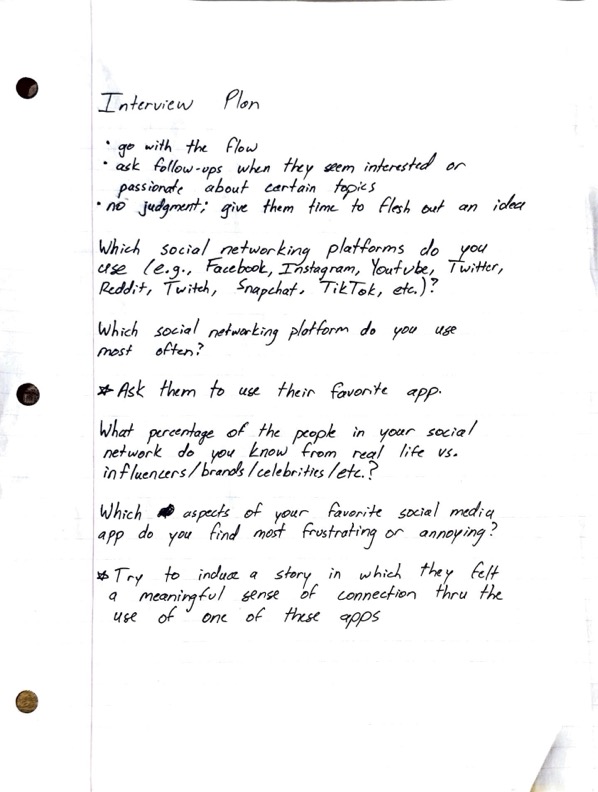 Interview Plan
• go with the flow
• ask follow-ups when they seem interested or
passionate about certain topics
• no judgment; give them time to flesh out an idea
Which social networking platforms do you
use (e.g., Facebook, Instagram, Youtube, Twitter,
Reddit, Twitch, Snapchat, TikTok, etc.)?
Which social networking platform do you use
most often?
* Ask them to use their favorite app.
What percentage of the people in your social
network do you know from real life vs.
influencers/brands/celebrities/etc.?
Which aspects of your favorite social media
app do you find most frustrating or annoying?
* Try to induce a story in which they felt
a meaningful sense of connection thru the
use of one of these apps